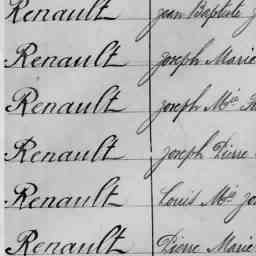 Renault Jean Baptiste
Renault Joseph Marie
Renault Joseph Mie
Renault Joseph Pierre
Renault Louis Mie
Renault Pierre Marie